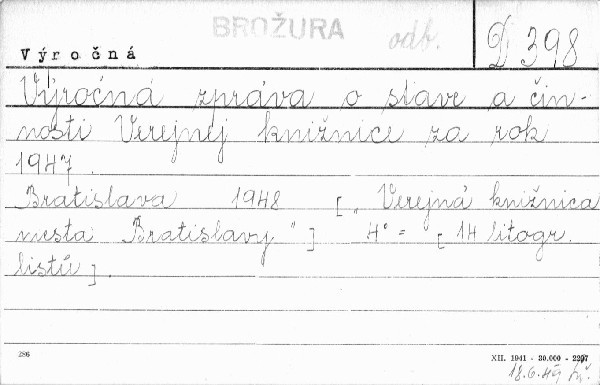 BROŽURA
odb.
D 398
Výročná
Výročná zpráva o stave a čin-
nosti Verejnej knižnice za rok
1947.
Bratislava 1948 [„Verejná knižnica
mesta Bratislavy"] 4° = [14 litogr.
listů].
286
XII. 1941 - 30.000 - 2297
18.6.49